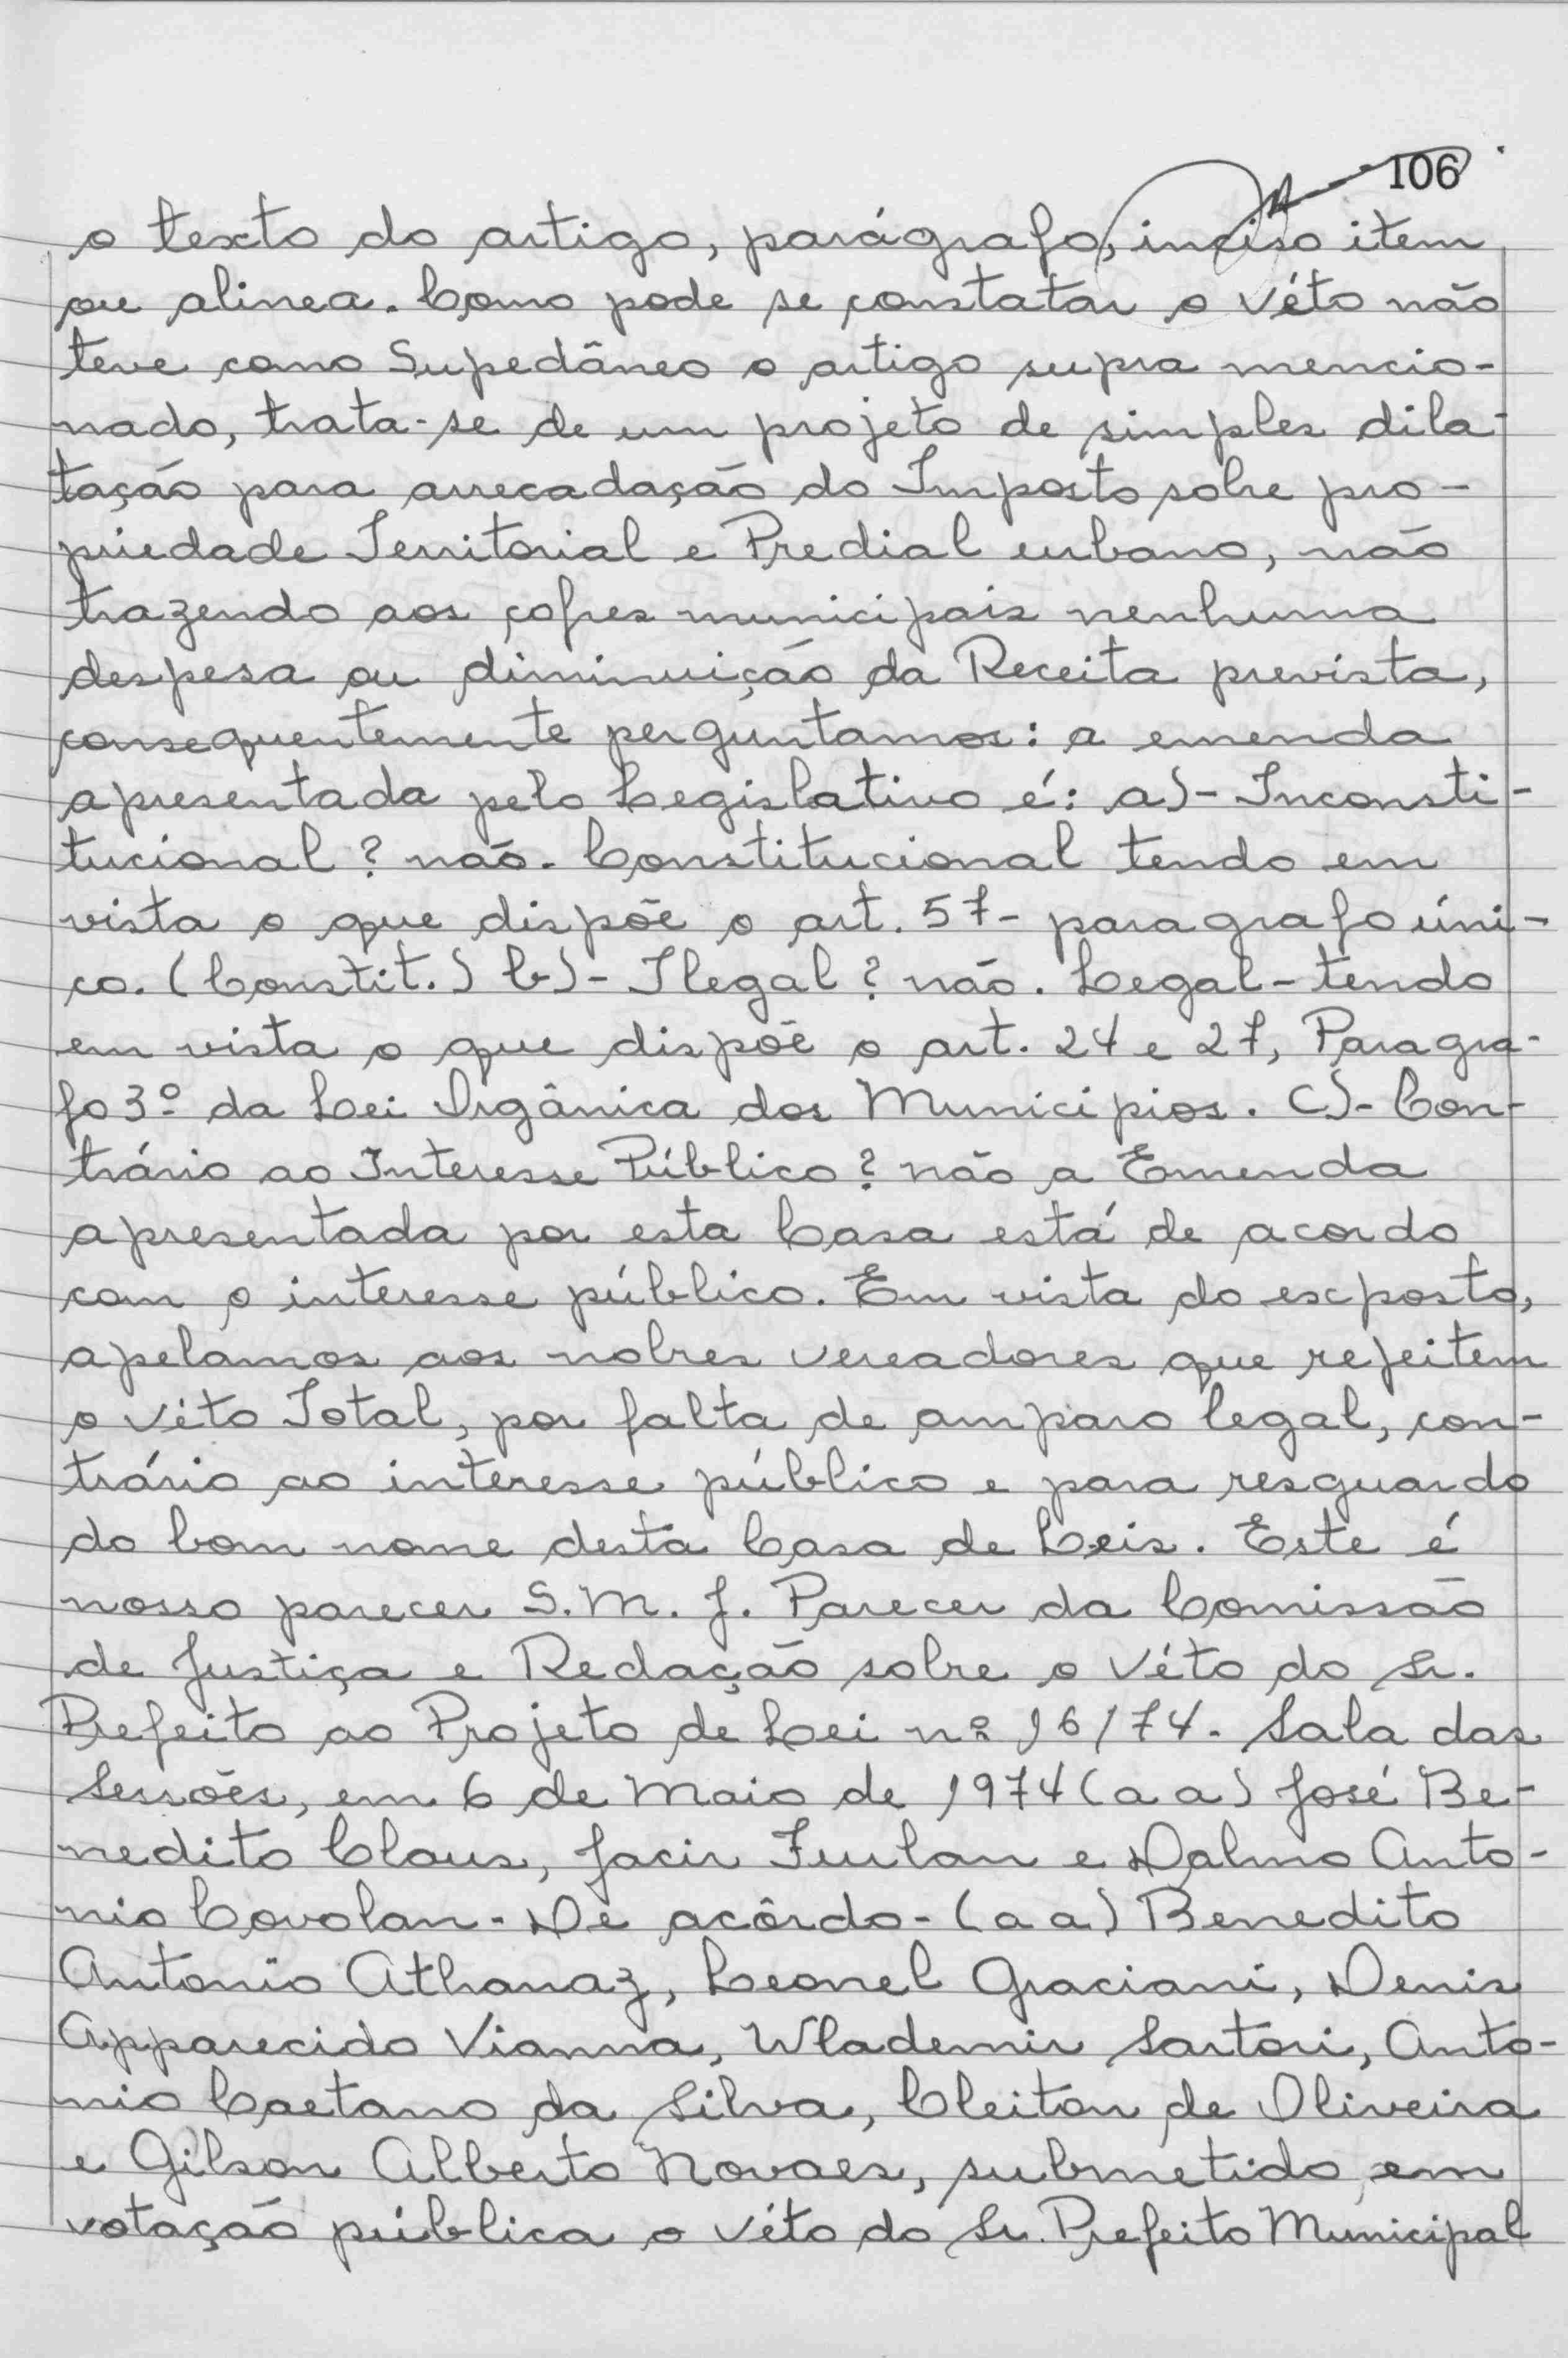 106
o texto do artigo, parágrafo, inciso item
ou alinea. Como pode se constatar o Véto não
teve como Supedâneo o artigo supra mencio-
nado, trata-se de um projeto de simples dila-
tação para arrecadação do Imposto sobre pro-
priedade Territorial e Predial urbano, não
trazendo aos cofres municipais nenhuma
despesa ou diminuição da Receita prevista,
consequentemente perguntamos: a emenda
apresentada pelo Legislativo é: a)- Inconsti-
tucional? não. Constitucional tendo em
vista o que dispõe o art. 57- paragrafo úni-
co. (Constit.) b)- Ilegal? não. Legal-tendo
em vista o que dispõe o art. 24 e 27, Paragra-
fo 3º da Lei Orgânica dos Municipios. C)- Con-
trário ao Interesse Público? não a Emenda
apresentada por esta Casa está de acordo
com o interesse público. Em vista do exposto,
apelamos aos nobres vereadores que rejeitem
o véto Total, por falta de amparo legal, con-
trário ao interesse público e para resguardo
do bom nome desta Casa de Leis. Este é
nosso parecer S.M.J. Parecer da Comissão
de Justiça e Redação sobre o Véto do Sr.
Prefeito ao Projeto de Lei nº 16/74. Sala das
Sessões, em 6 de Maio de 1974 (a a) José Be-
nedito Claus, Jacir Furlan e Dalmo Anto-
nio Covolan - De acôrdo - (a a) Benedito
Antonio Athanaz, Leonel Graciani, Denis
Apparecido Vianna, Wlademir Sartori, Anto-
nio Caetano da Silva, Cleiton de Oliveira
e Gilson Alberto Novaes, submetido em
votação pública o véto do Sr. Prefeito Municipal